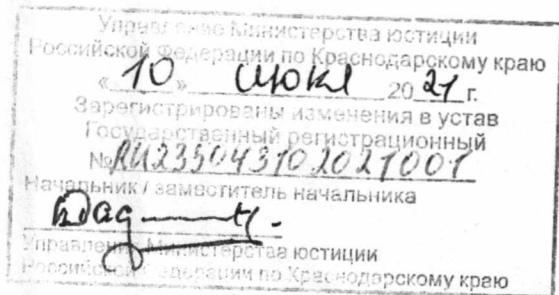 Управление Министерства юстиции
Российской Федерации по Краснодарскому краю
«10» июня 2021 г.
Зарегистрированы изменения в устав
Государственный регистрационный
№ RU235043102021001
Начальник / заместитель начальника
Управление Министерства юстиции
Российской Федерации по Краснодарскому краю